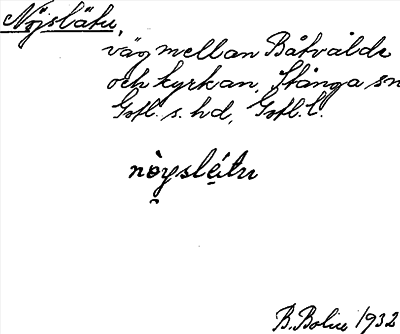 Nöjslätu,
väg mellan Båtvälde
och kyrkan, Stånga sn
Gotl. s. hd, Gotl. l.
nòyslétu
B. Bolin 1932